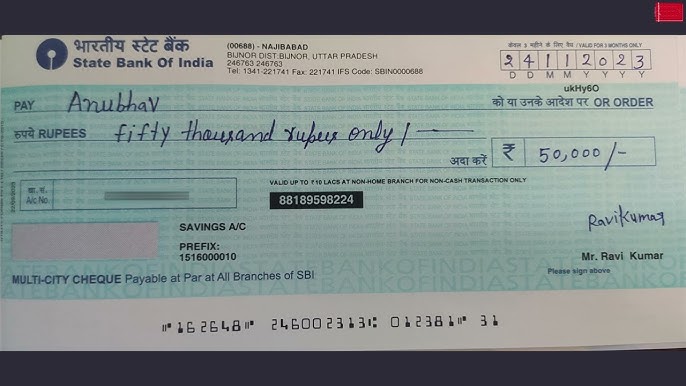 भारतीय स्टेट बैंक
State Bank Of India
(00688) - NAJIBABAD
BIJNOR DIST:BIJNOR, UTTAR PRADESH
246763 246763
Tel: 1341-221741 Fax: 221741 IFS Code: SBIN0000688
केवल 3 महीने के लिए वैध / VALID FOR 3 MONTHS ONLY
24112023
D D M M Y Y Y Y
ukHy6O
PAY Anubhav को या उनके आदेश पर OR ORDER
रुपये RUPEES fifty thousand rupees only/
अदा करें ₹ 50,000/-
खा. सं.
A/c No.
VALID UP TO ₹10 LACS AT NON-HOME BRANCH FOR NON-CASH TRANSACTION ONLY
88189598224
SAVINGS A/C
PREFIX:
1516000010
RaviKumar
Mr. Ravi Kumar
Please sign above
MULTI-CITY CHEQUE Payable at Par at All Branches of SBI
⑈162648⑈ 246002313⑆ 012381⑈ 31